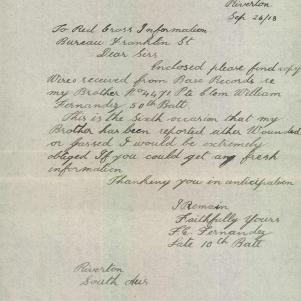 Riverton
Sep 26/18
To Red Cross Information
Bureau Franklin St
Dear Sirs
Enclosed please find copy
Wires received from Base Records re
my Brother No 4471 Pte Clem William
Fernandez 50th Batt.
This is the Sixth occasion that my
Brother has been reported either Wounded
or gassed I would be extremely
obliged If you could get any fresh
information
Thanking you in anticipation
I Remain
Faithfully Yours
F.E. Fernandez
Late 10th Batt
Riverton
South Aus